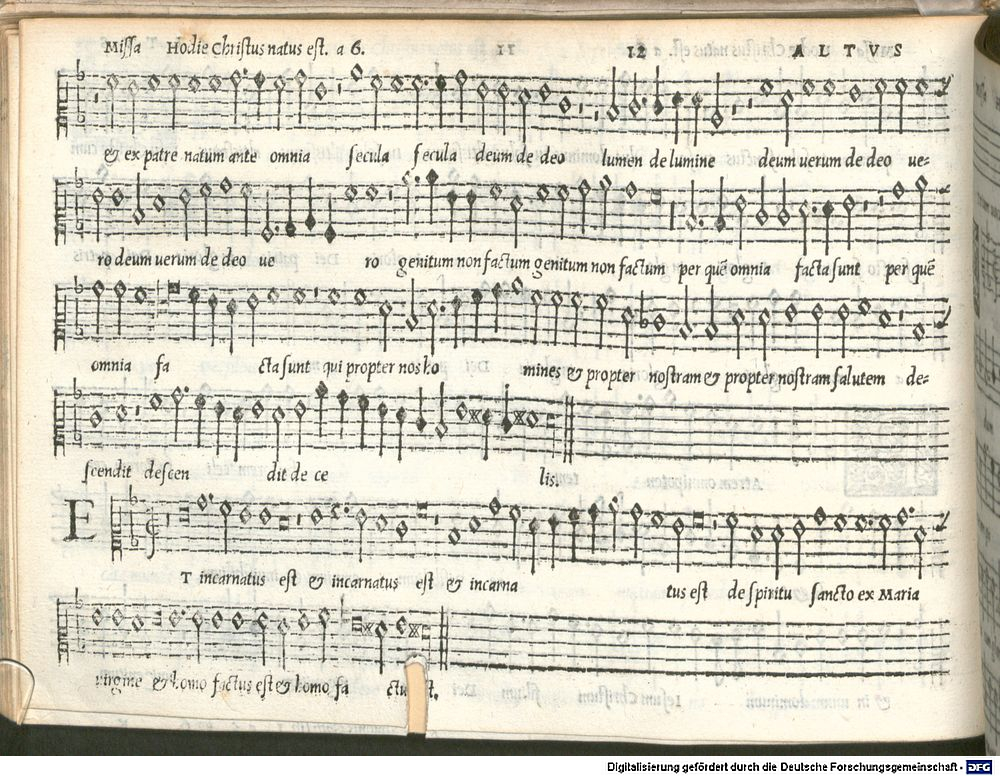 Missa Hodie Christus natus est. a 6. 11 12 ALTVS
& ex patre natum ante omnia secula secula deum de deo lumen de lumine deum uerum de deo ue=
ro deum uerum de deo ue ro genitum non factum genitum non factum per quē omnia facta sunt per quē
omnia fa cta sunt qui propter nos ho mines & propter nostram & propter nostram salutem de=
scendit descen dit de ce lis.
E
T incarnatus est & incarnatus est & incarna tus est de spiritu sancto ex Maria
virgine & homo factus est & homo fa
Digitalisierung gefördert durch die Deutsche Forschungsgemeinschaft - DFG